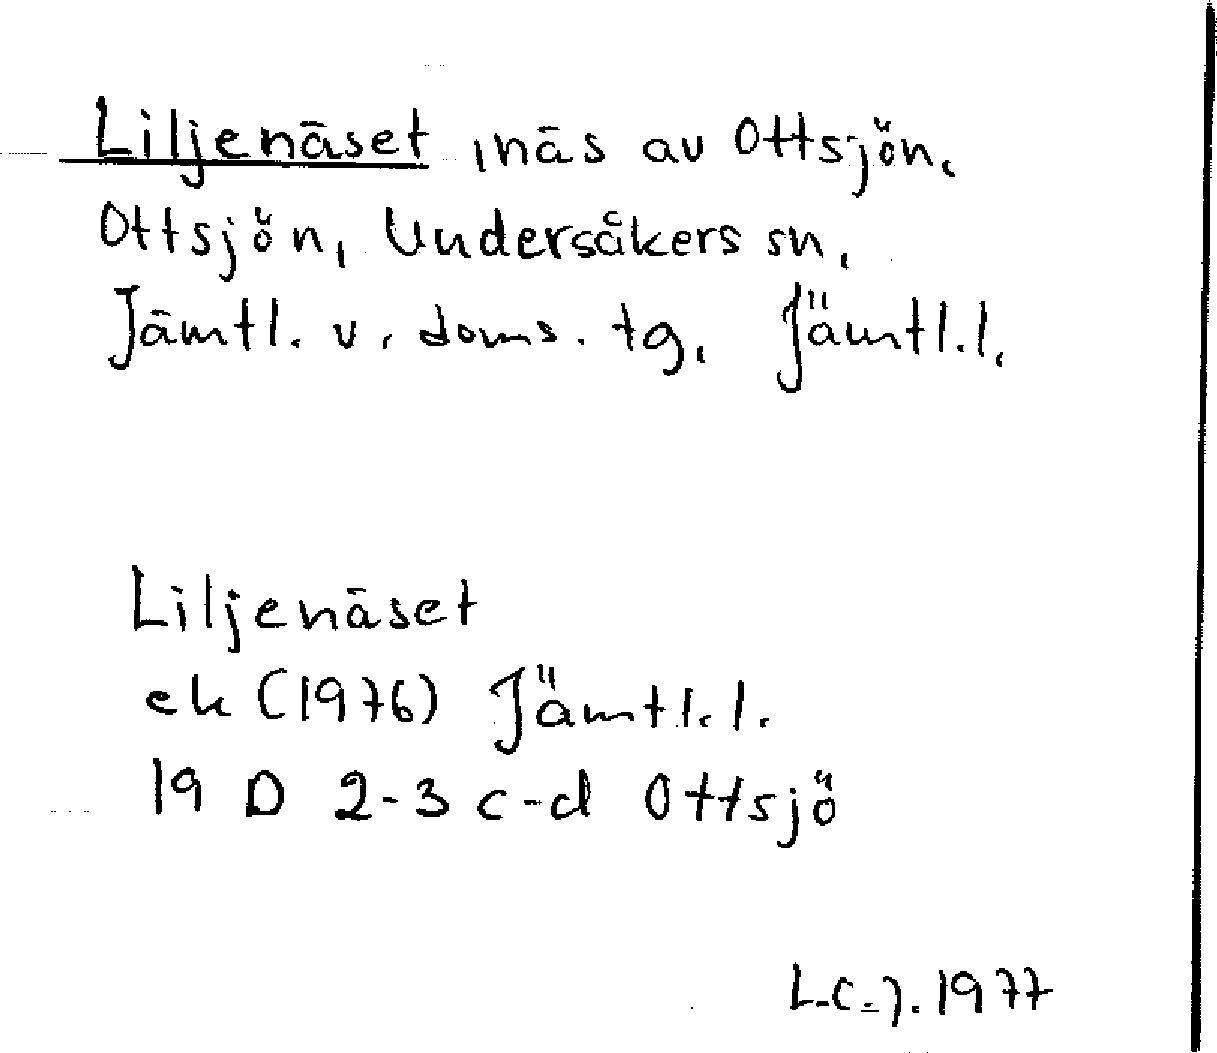 Liljenäset, näs av Ottsjön,
Ottsjön, Undersåkers sn,
Jämtl. v. doms. tg, Jämtl.l.
Liljenäset
ek (1976) Jämtl.l.
19 D 2-3 c-d Ottsjö
1977